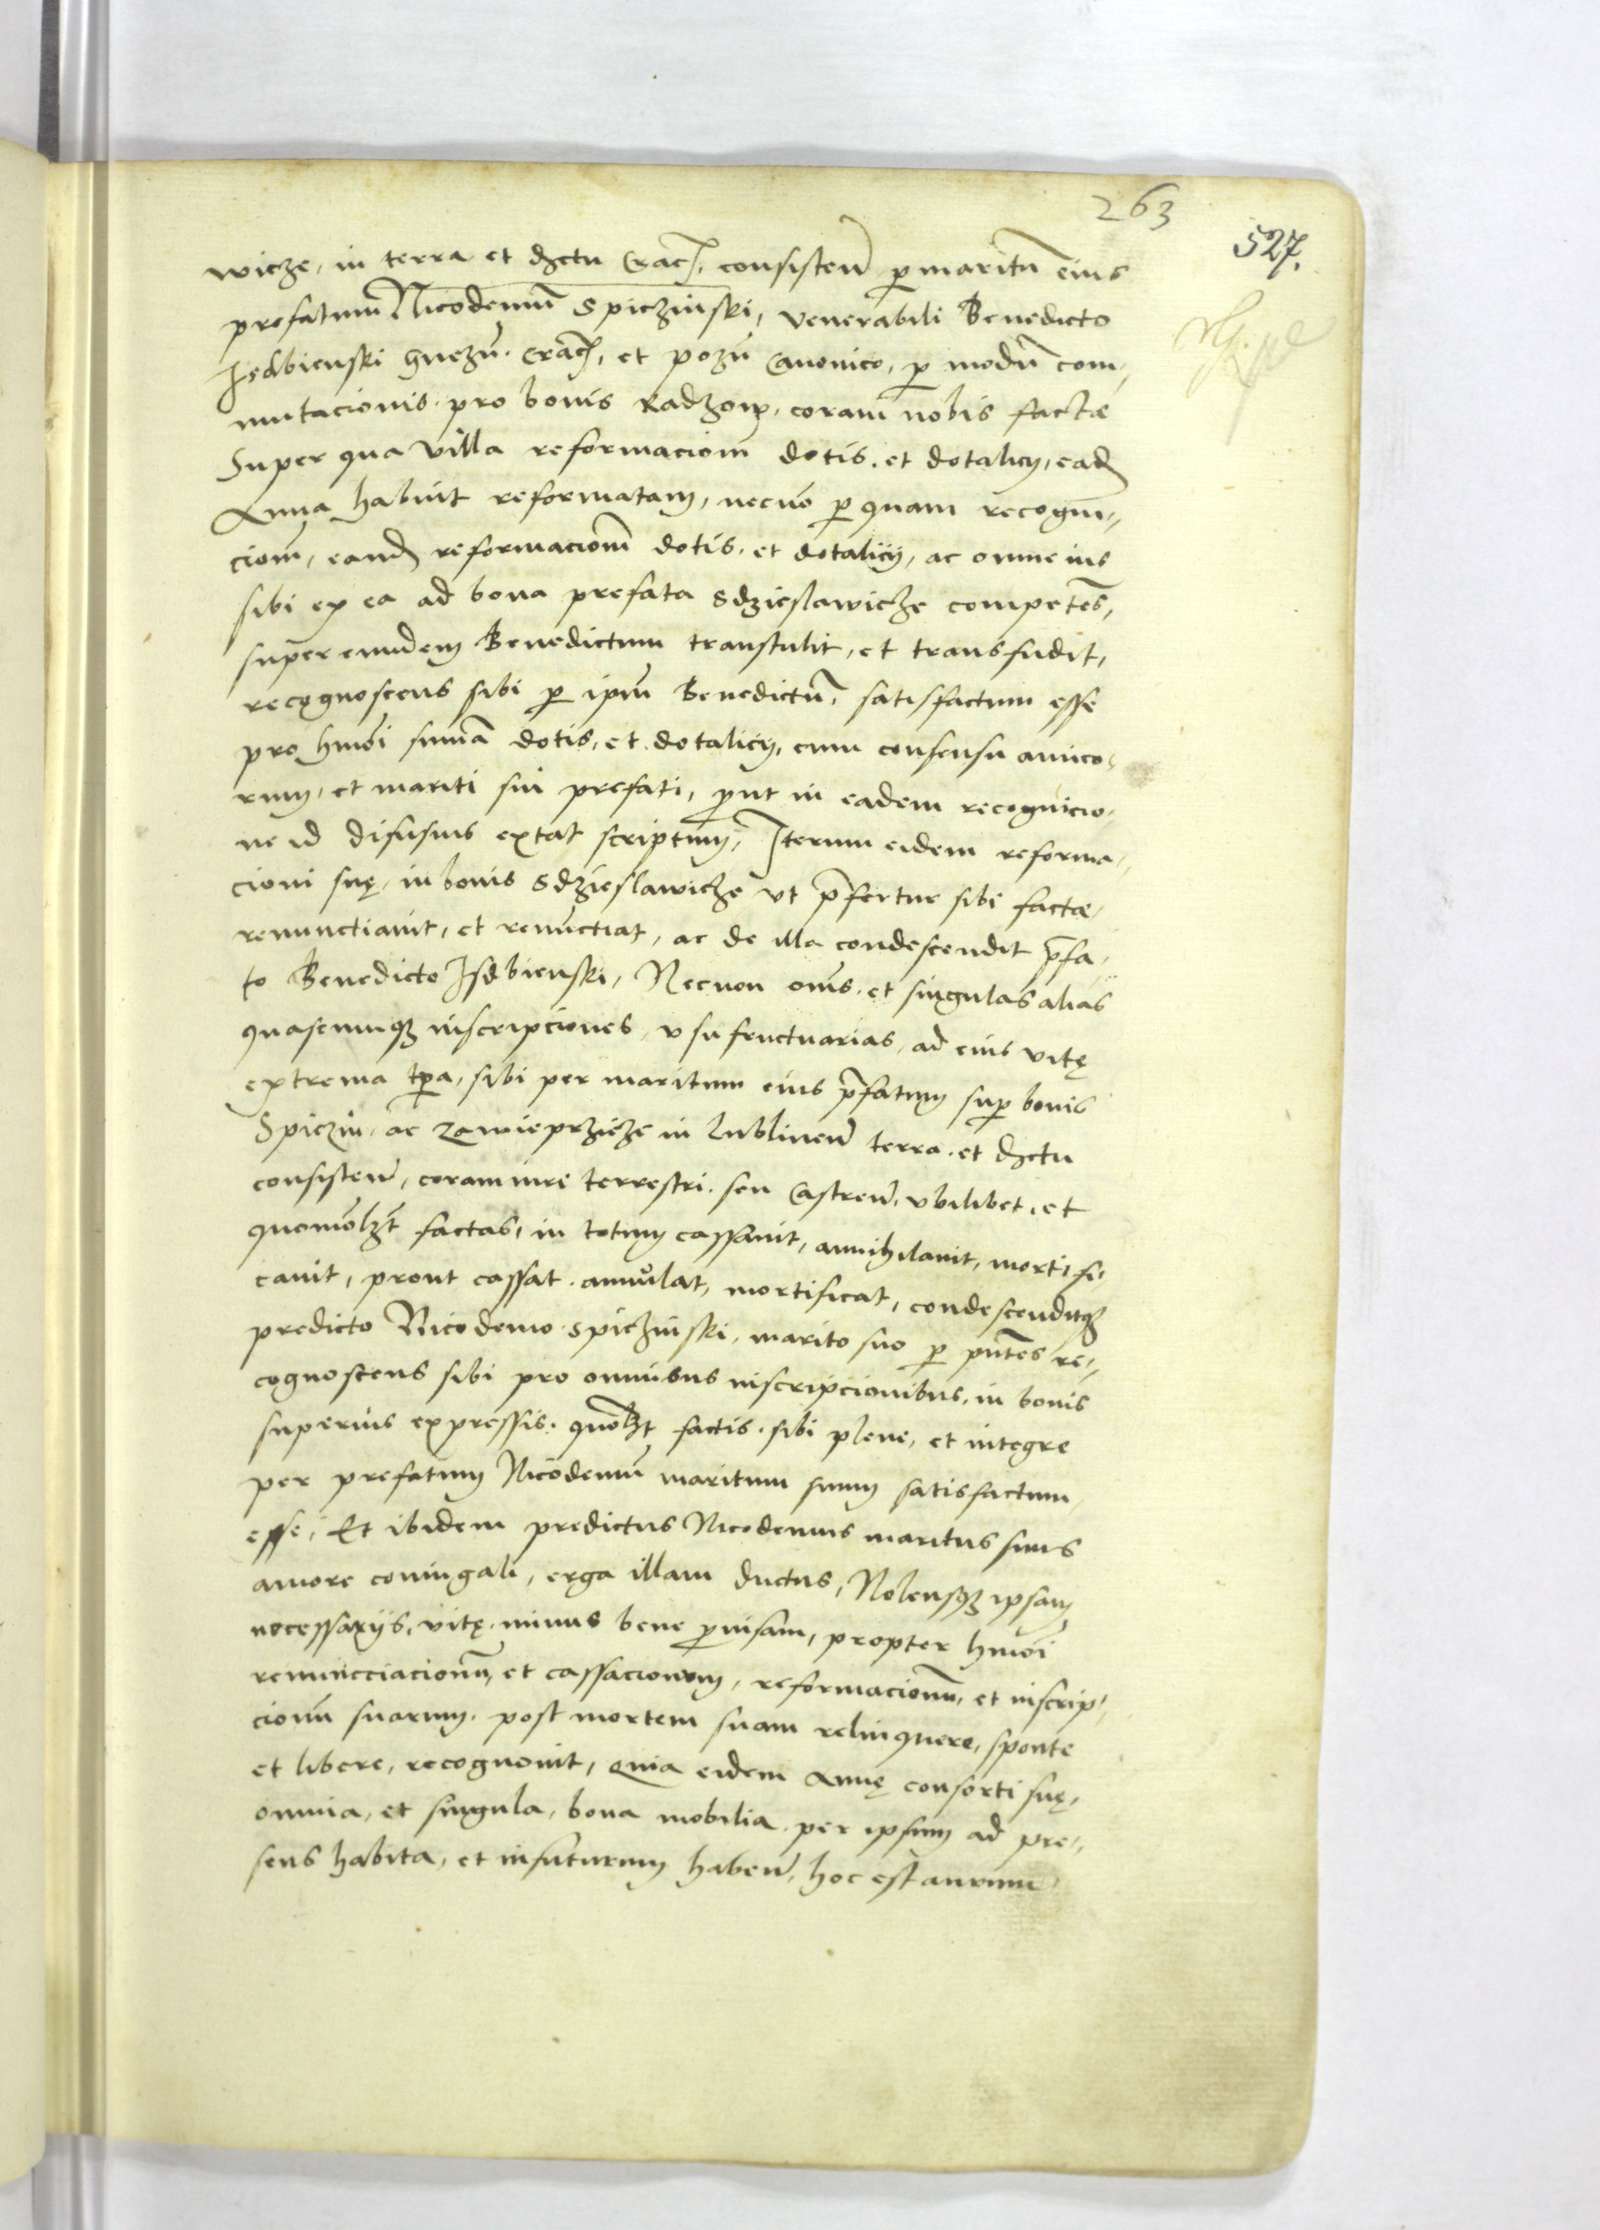 263
527.
wicze, in terra et dzctu Crac̄, consisteñ ꝑ maritū eius
prefatum Nicodemū Spiczinski, venerabili Benedicto
Isdbienski Gneznn̄. Crac̄, et pozn̄ Canonico, ꝑ modū com-
mutacionis pro bonis Radzow, coram nobis factæ
Super qua villa reformacionē dotis, et dotalicij, eadē
Anna habuit reformatam, necnō ꝑ quam recogni-
cionē, eandē reformacionē dotis, et dotalicij, ac omne ius
sibi ex ea ad bona prefata Sdzieslawicze competēs,
super eundem Benedictum transtulit, et transfudit,
recognoscens sibi ꝑ ip̄m Benedictū, satisfactum esse
pro hmōi sum̄a dotis, et dotalicij, cum consensu amico-
rum, et mariti sui prefati, ꝓut in eadem recognicio-
ne id difusius extat scriptum, Iterum eidem reforma-
cioni suę, in bonis Sdzieslawicze vt p̄fertur sibi factæ,
renunctiauit, et renūctiat, ac de illa condescendit p̄fa-
to Benedicto Isdbienski, Necnon om̄s et singulas alias
quascunqȝ inscripciones, vsufructuarias, ad eius vitę
extrema tꝑa, sibi per maritum eius p̄fatum suꝑ bonis
Spiczin, ac Zawieprzicze in Lublineñ terra et dzctu
consisteñ, coram iure terrestri seu Castreñ, vbilibet, et
quomōlȝt factas, in totum cassauit, annihilauit, mortifi-
cauit, prout cassat, annulat, mortificat, condescenditqȝ
predicto Nicodemo Spiczinski, marito suo ꝑ pn̄tes re-
cognoscens sibi pro omnibus inscripcionibus, in bonis
superius expressis quōlȝt factis, sibi plene, et integre
per prefatum Nicodemū maritum suum satisfactum
esse, Et ibidem predictus Nicodemus maritus suus
amore coniugali, erga illam ductus, Nolensqȝ ipsam
necessarijs, vitę minus bene ꝓuisam, propter hmōi
renuncciacionū, et cassacionem, reformacionū, et inscrip-
cionū suarum, post mortem suam relinquere, sponte
et libere, recognouit, Quia eidem Annę consorti suę,
omnia, et singula, bona mobilia per ipsum ad pre-
sens habita, et in futurum habeñ, hoc est aurum